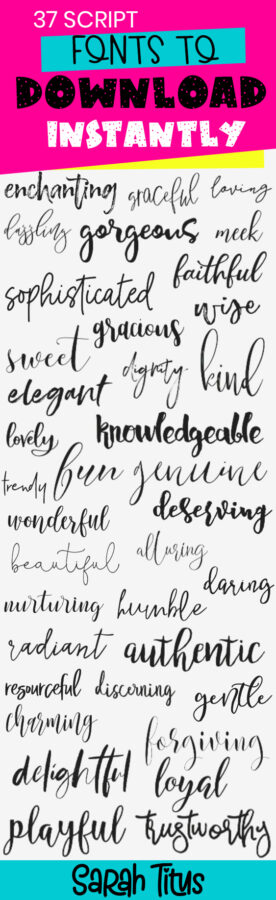 37 SCRIPT
FONTS TO
DOWNLOAD
INSTANTLY
enchanting graceful loving
dazzling gorgeous meek
faithful
sophisticated wise
gracious
sweet dignity kind
elegant
lovely knowledgeable
trendy fun genuine
deserving
wonderful
beautiful alluring
daring
nurturing humble
radiant authentic
resourceful discerning gentle
charming
forgiving
delightful loyal
playful trustworthy
Sarah Titus